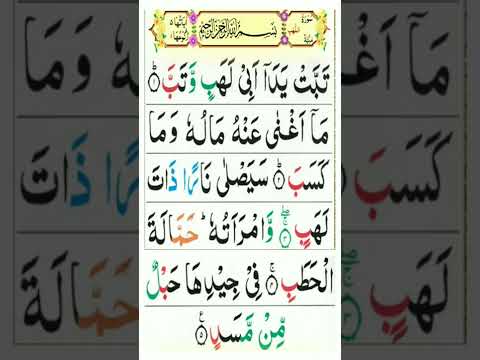 بِسْمِ اللهِ الرَّحْمٰنِ الرَّحِيْمِ
تَبَّتْ يَدَاۤ اَبِىْ لَهَبٍ وَّتَبَّ ۝١
مَاۤ اَغْنٰى عَنْهُ مَالُهٗ وَمَا
كَسَبَ ۝٢ سَيَصْلٰى نَارًا ذَاتَ
لَهَبٍ ۝٣ وَّامْرَاَتُهٗ ؕ حَمَّالَةَ
الْحَطَبِ ۝٤ فِىْ جِيْدِهَا حَبْلٌ
مِّنْ مَّسَدٍ ۝٥